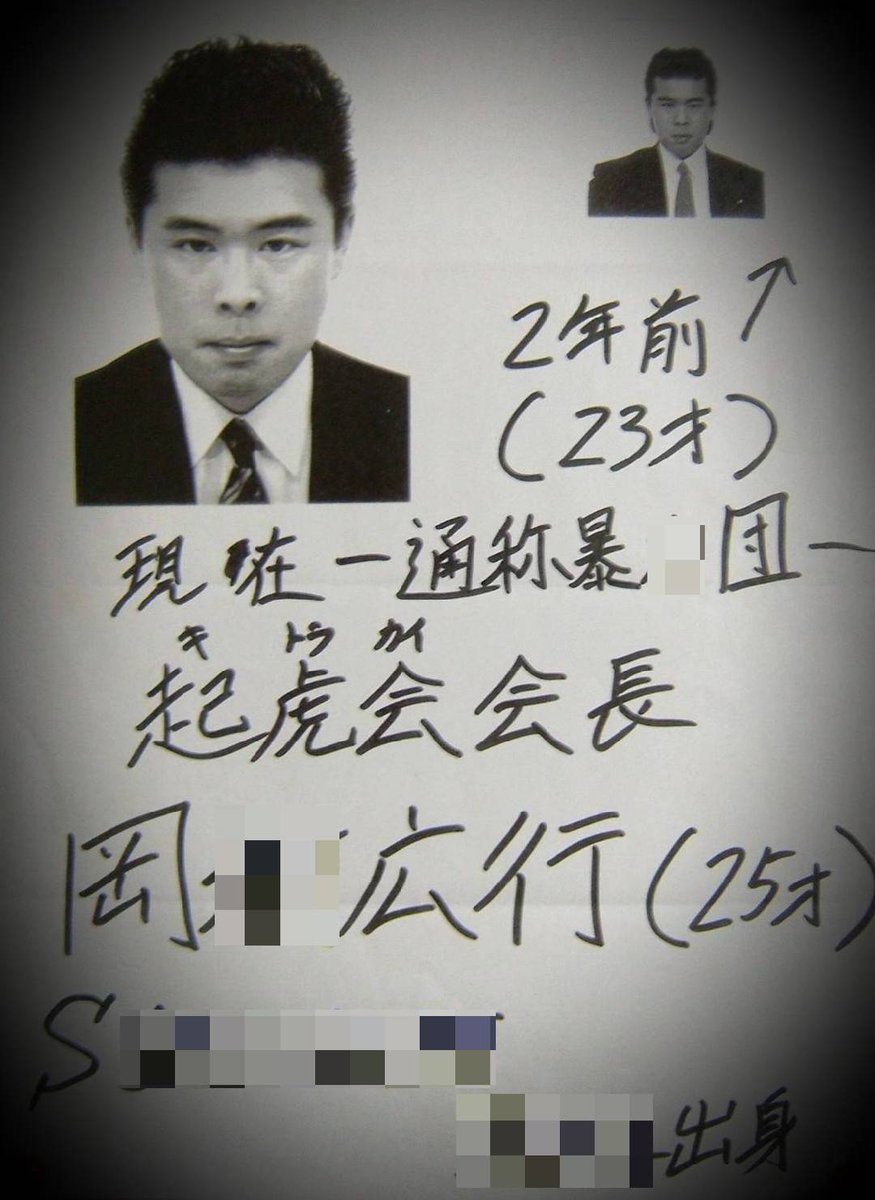 2年前
(23才)
現在ー通称暴 団ー
キ トラ カイ
起虎会会長
岡 広行(25才)
S
出身